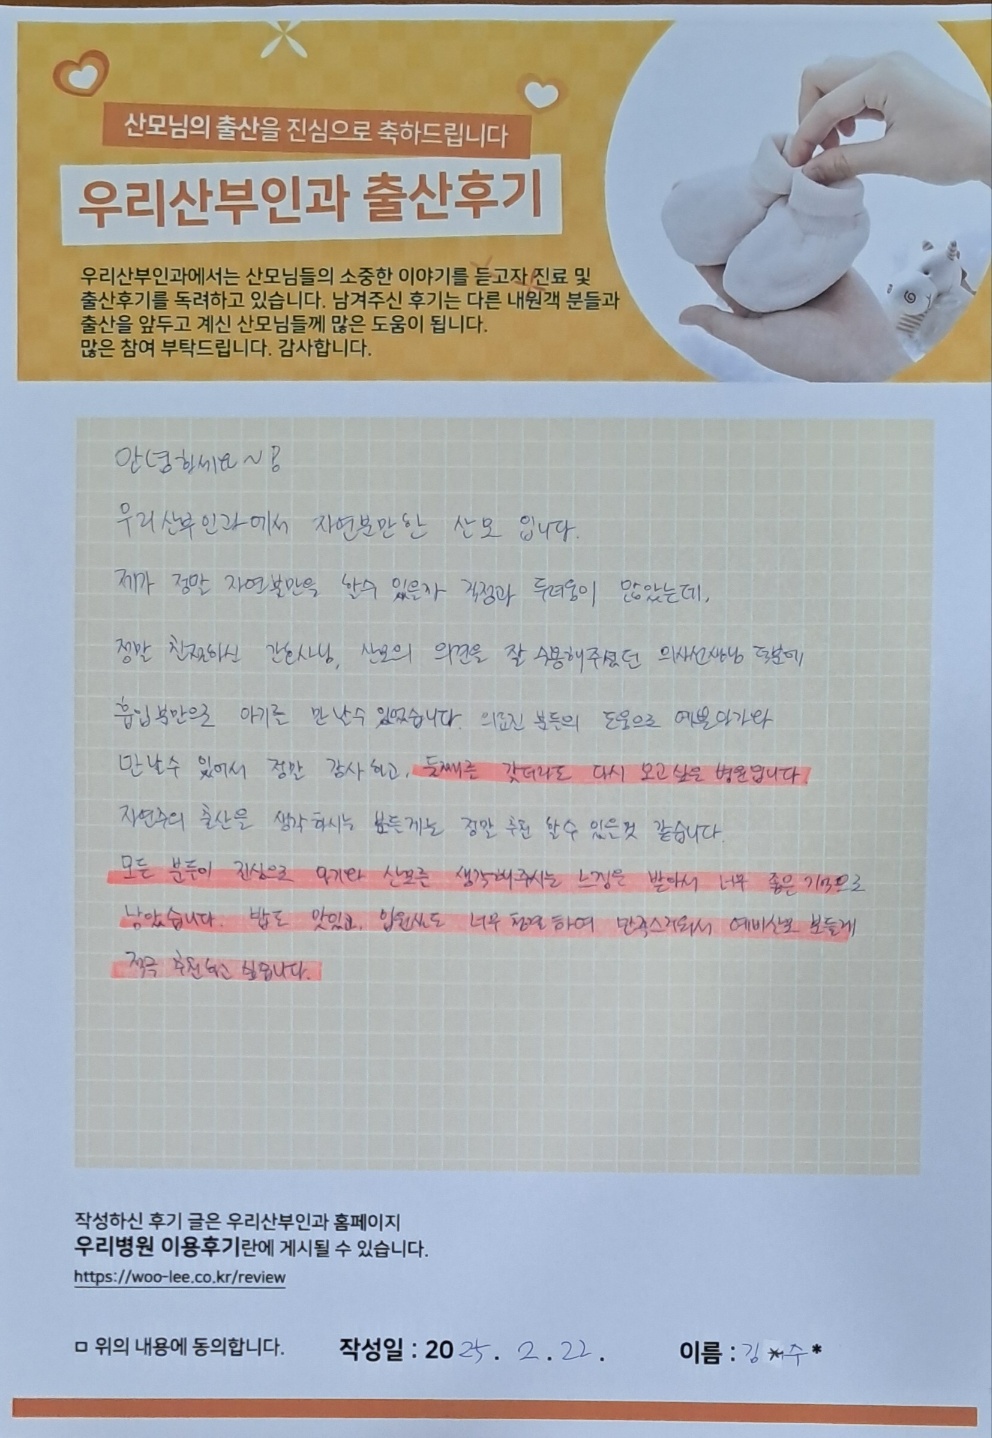 산모님의 출산을 진심으로 축하드립니다
우리산부인과 출산후기
우리산부인과에서는 산모님들의 소중한 이야기를 듣고자 진료 및
출산후기를 독려하고 있습니다. 남겨주신 후기는 다른 내원객 분들과
출산을 앞두고 계신 산모님들께 많은 도움이 됩니다.
많은 참여 부탁드립니다. 감사합니다.
안녕하세요~
우리산부인과에서 자연분만한 산모 입니다.
제가 정말 자연분만을 할수 있을까 걱정과 두려움이 많았는데,
정말 친절하신 간호사님, 산모의 의견을 잘 수용해주셨던 의사선생님 덕분에
흡입분만으로 아기를 만날수 있었습니다. 의료진 분들의 도움으로 예쁜아가와
만날수 있어서 정말 감사하고, 둘째를 갖더라도 다시 오고싶은 병원입니다.
자연주의 출산을 생각하시는 분들께는 정말 추천 할수 있을것 같습니다.
모든 분들이 진심으로 아기와 산모를 생각해주시는 느낌을 받아서 너무 좋은 기억으로
남았습니다. 밥도 맛있고, 입원실도 너무 청결하여 만족스러워서 예비산모 분들께
적극 추천하고 싶습니다.
작성하신 후기 글은 우리산부인과 홈페이지
우리병원 이용후기란에 게시될 수 있습니다.
https://woo-lee.co.kr/review
ㅁ 위의 내용에 동의합니다. 작성일 : 2025. 2. 22. 이름 : 김*주*